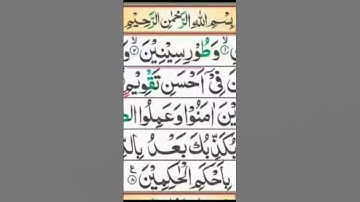 بِسْمِ اللّٰهِ الرَّحْمٰنِ الرَّحِيْمِ
۝۱ وَطُوْرِ سِيْنِيْنَ ۝۲
فِيْۤ اَحْسَنِ تَقْوِيْمٍ
اٰمَنُوْا وَعَمِلُوا
يُكَذِّبُكَ بَعْدُ
بِاَحْكَمِ الْحٰكِمِيْنَ ۝۸